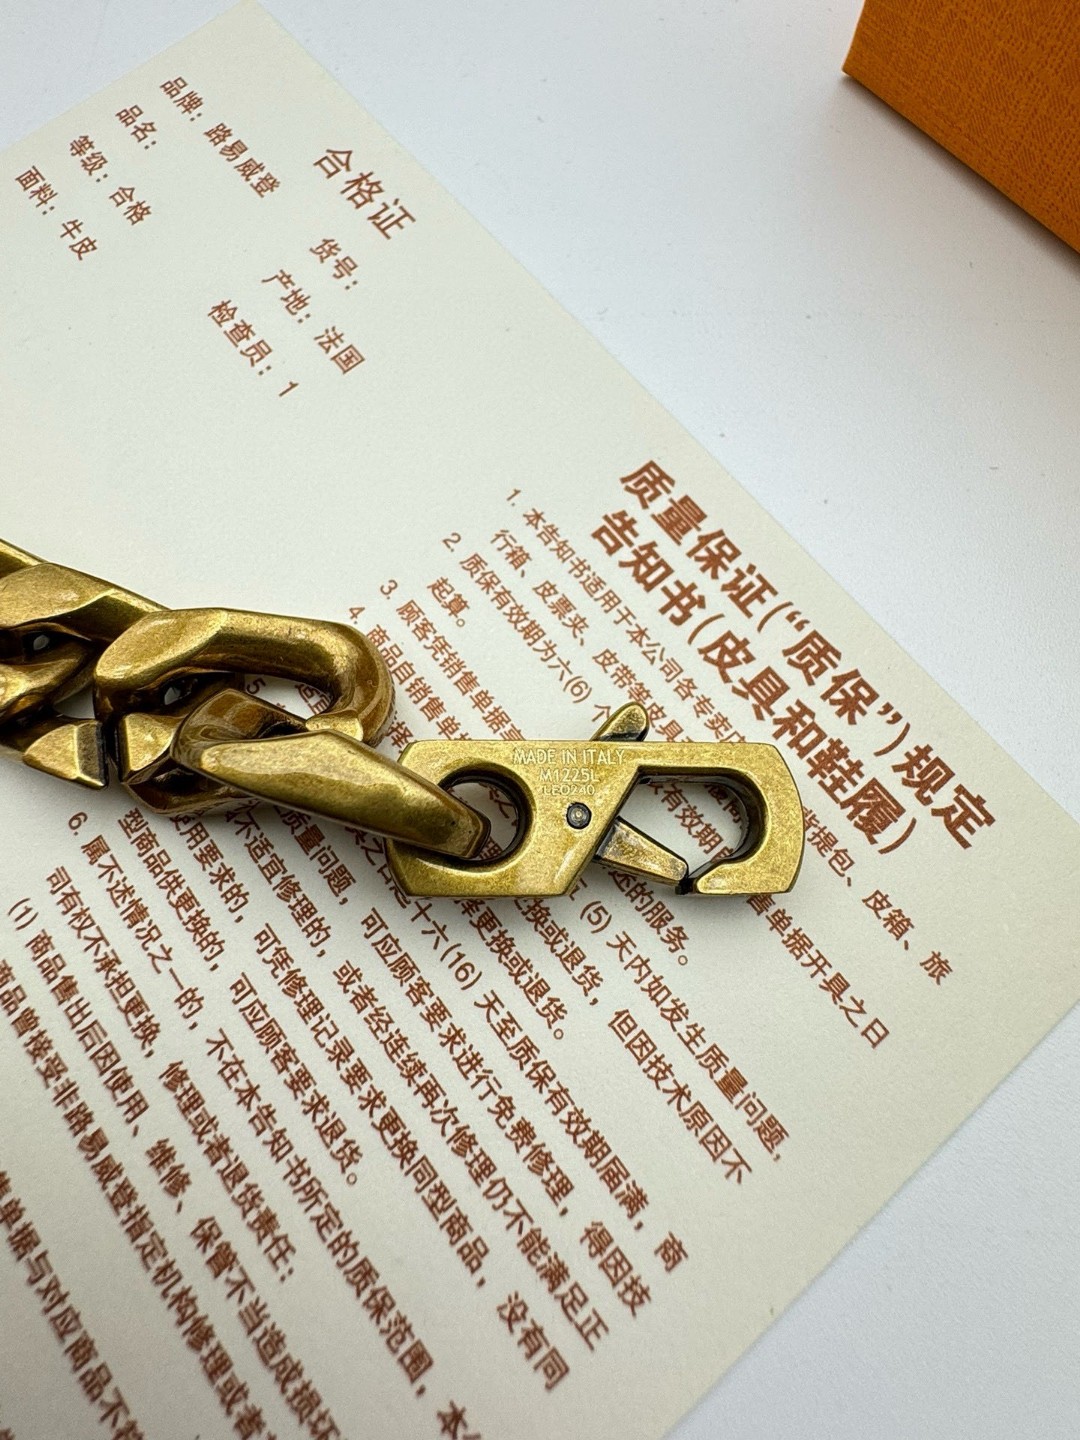 合格证
品牌：路易威登
货号：
品名：
产地：法国
等级：合格
检查员：1
面料：牛皮
质量保证(“质保”)规定
告知书(皮具和鞋履)
1. 本告知书适用于本公司各专卖店
货提包、皮箱、旅
行箱、皮票夹、皮带等皮具
2. 质保有效期为六(6) 个
售单据开具之日
起算。
3. 顾客凭销售单据
有效期
述的服务。
4. 商品自销售单据
(5) 天内如发生质量问题，
择
换或退货，但因技术原因不
更换或退货。
5
十六(16) 天至质保有效期届满，商
质量问题，可应顾客要求进行免费修理，得因技
不适宜修理的，或者经连续再次修理仍不能满足正
使用要求的，可凭修理记录要求更换同型商品，没有同
型商品供更换的，可应顾客要求退货。
6. 属不述情况之一的，不在本告知书所定的质保范围，本
司有权不承担更换，修理或者退货责任：
(1) 商品售出后因使用、维修、保管不当造成损坏
商品曾接受非路易威登指定机构修理或者
售单据与对应商品不符
MADE IN ITALY
M1225L
LE0240